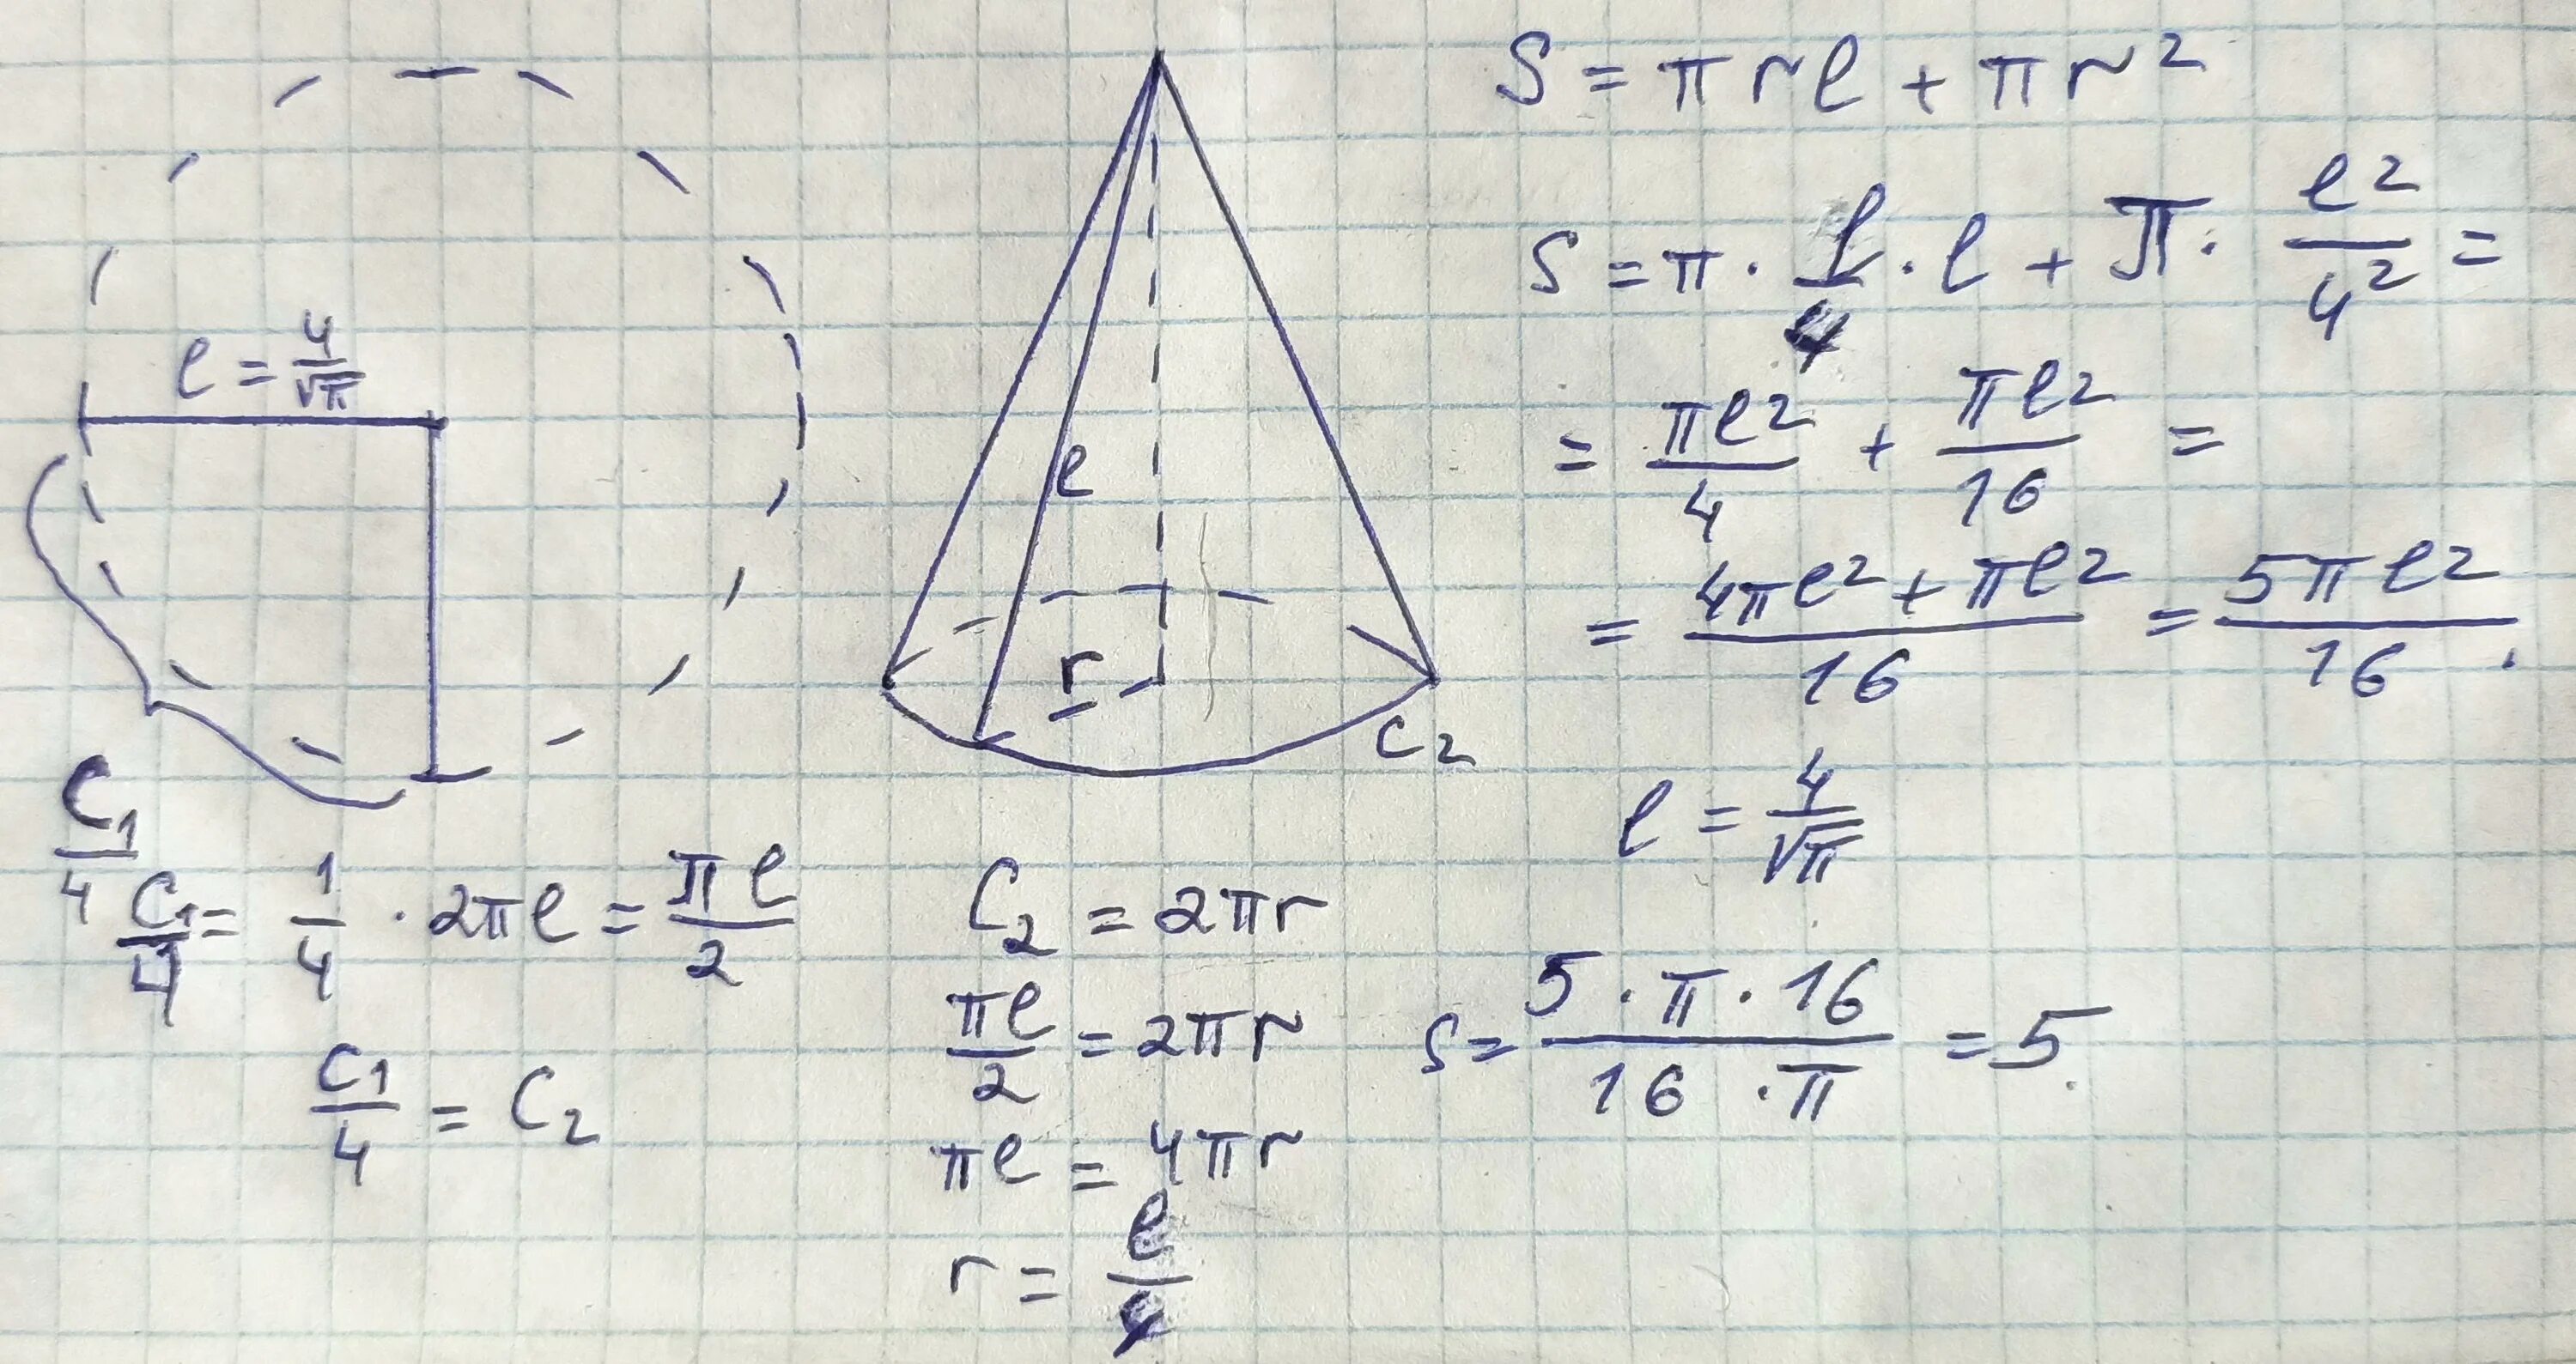 l = 4/√π
C₁/4
C₁/4 = 1/4 · 2πl = πl/2
C₁/4 = C₂
l
r
C₂
C₂ = 2πr
πl/2 = 2πr
πl = 4πr
r = l/4
S = πrl + πr²
S = π · l/4 · l + π · l²/4² =
= πl²/4 + πl²/16 =
= (4πl² + πl²)/16 = 5πl²/16 .
l = 4/√π
S = (5 · π · 16)/(16 · π) = 5.